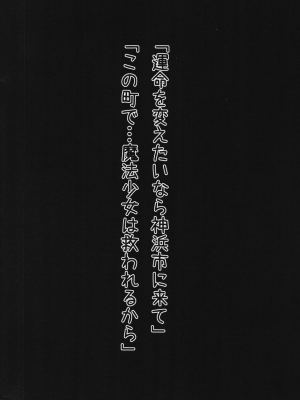 「運命を変えたいなら神浜市に来て」
「この町で…魔法少女は救われるから」